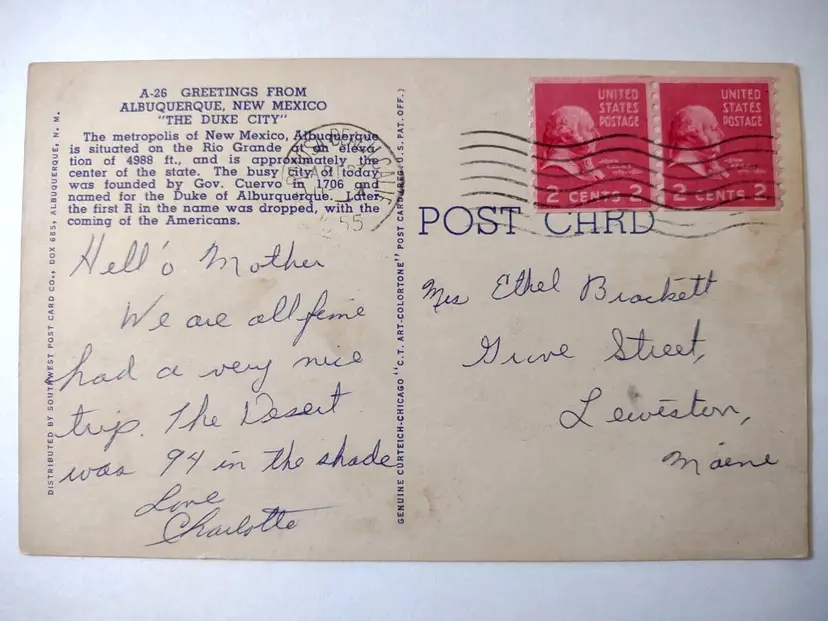 A-26 GREETINGS FROM
ALBUQUERQUE, NEW MEXICO
"THE DUKE CITY"
The metropolis of New Mexico, Albuquerque
is situated on the Rio Grande at an eleva-
tion of 4988 ft., and is approximately the
center of the state. The busy city of today
was founded by Gov. Cuervo in 1706 and
named for the Duke of Alburquerque. Later
the first R in the name was dropped, with the
coming of the Americans.
Hell'o Mother
We are all fine
had a very nice
trip. The Desert
was 94 in the shade
Love
Charlotte
DISTRIBUTED BY SOUTHWEST POST CARD CO., BOX 685, ALBUQUERQUE, N. M.
GENUINE CURTEICH-CHICAGO "C.T. ART-COLORTONE" POST CARD (REG. U.S. PAT. OFF.)
CALIF
55
UNITED
STATES
POSTAGE
JOHN ADAMS
2 CENTS 2
UNITED
STATES
POSTAGE
JOHN ADAMS
2 CENTS 2
POST CARD
Mrs Ethel Brackett
Grove Street,
Lewiston,
Maine